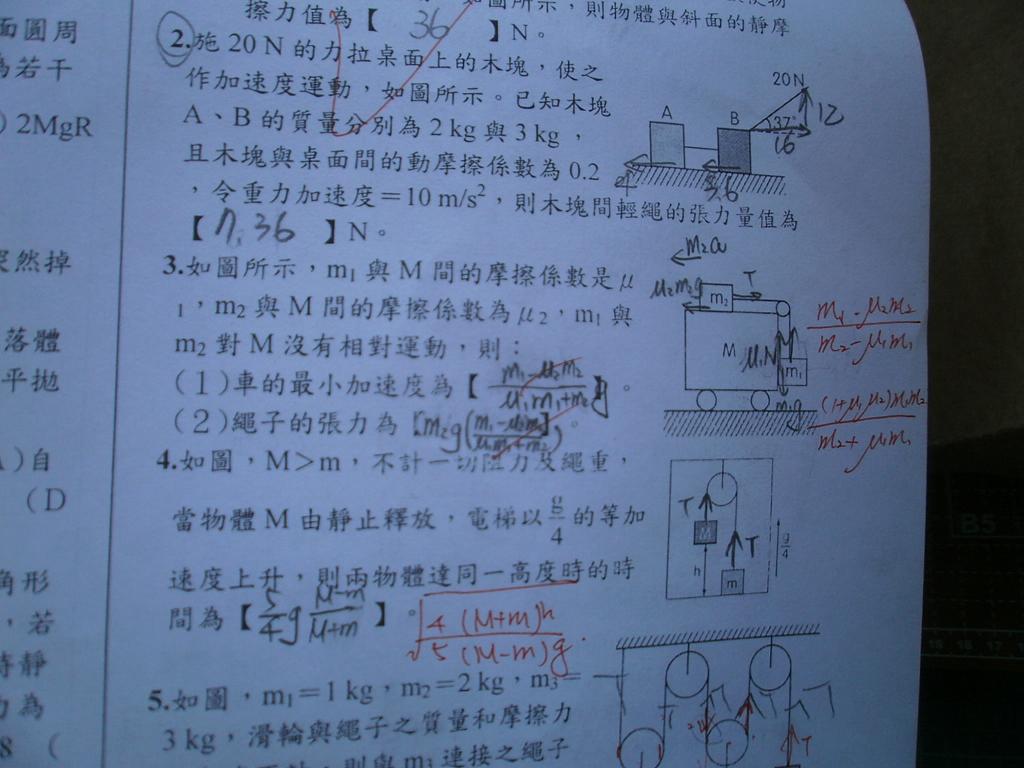 面圓周
為若干
) 2MgR
突然掉
落體
平拋
A ) 自
( D
角形
，若
時靜
力為
8 (
擦力值為【 36 】N。
如圖所示，則物體與斜面的靜摩
2.施 20 N 的力拉桌面上的木塊，使之
作加速度運動，如圖所示。已知木塊
A、B 的質量分別為 2 kg 與 3 kg，
且木塊與桌面間的動摩擦係數為 0.2
，令重力加速度＝10 m/s²，則木塊間輕繩的張力量值為
【 7.36 】N。
20 N
A
B
37°
12
16
4
3.6
3.如圖所示，m₁ 與 M 間的摩擦係數是 μ
₁，m₂ 與 M 間的摩擦係數為 μ₂，m₁ 與
m₂ 對 M 沒有相對運動，則：
(1)車的最小加速度為【 (m₁-μ₂m₂)/(μ₁m₁+m₂) g 】。
(2)繩子的張力為【 m₂g( (m₁-μ₂m₂)/(μ₁m₁+m₂) ) 】。
m₂a
μ₂m₂g
m₂
T
M
μ₁N
m₁
m₁g
(m₁-μ₂m₂)/(m₂-μ₁m₁)
(1+μ₁μ₂)m₁m₂/(m₂+μ₁m₁)
4.如圖，M＞m，不計一切阻力及繩重，
當物體 M 由靜止釋放，電梯以 g/4 的等加
速度上升，則兩物體達同一高度時的時
間為【 5/4 g (M-m)/(M+m) 】。
√(4(M+m)h/5(M-m)g)
T
M
T
h
m
g/4
5.如圖，m₁＝1 kg，m₂＝2 kg，m₃＝
3 kg，滑輪與繩子之質量和摩擦力
，則與 m₃ 連接之繩子
T
B5
15 16 17